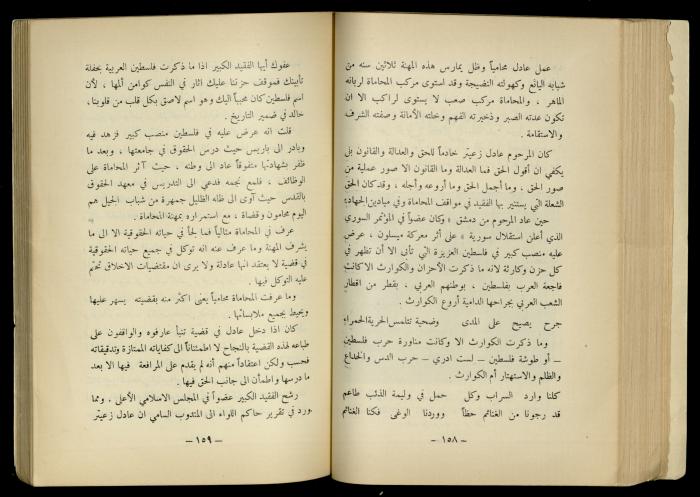 عمل عادل محامياً وظل يمارس هذه المهنة ثلاثين سنه من
شبابه اليافع وكهولته النضيجة وقد استوى مركب المحاماة لربانه
الماهر ، والمحاماة مركب صعب لا يستوى لراكب الا ان
تكون عدته الصبر وذخيرته الفهم وخلته الأمانة وصفته الشرف
والاستقامة .
كان المرحوم عادل زعيتر خادماً للحق والعدالة والقانون بل
يكفي ان أقول الحق فما العدالة وما القانون الا صور عملية من
صور الحق ، وما أجمل الحق وما أروعه وأجله ، وقد كان الحق
الشعلة التي يستنير بها الفقيد في مواقف المحاماة وفي ميادين الجهاد:
حين عاد المرحوم من دمشق ، وكان عضواً في المؤتمر السوري
الذي أعلن استقلال سورية ، على أثر معركة ميسلون ، عرض
عليه منصب كبير في فلسطين العزيزة التي تأبى الا أن تظهر في
كل حزن وكارثة لانه ما ذكرت الأحزان والكوارث الا كانت
فاجعة العرب بفلسطين ، بوطنهم العربي ، بقطر من اقطار
الشعب العربي بجراحها الدامية أروع الكوارث .
جرح يصيح على المدى وضحية تتلمس الحرية الحمراء
وما ذكرت الكوارث الا وكانت مناورة حرب فلسطين
– أو طوشة فلسطين – لست ادري – حرب الدس والخداع
والظلم والاستهتار أم الكوارث .
كلنا وارد السراب وكل حمل في وليمة الذئب طاعم
قد رجونا من الغنائم حظاً ووردنا الوغى فكنا الغنائم
– ١٥٨ –
عفوك أيها الفقيد الكبير اذا ما ذكرت فلسطين العربية بحفلة
تأبينك فموقف حزننا عليك اثار في النفس كوامن ألمها ، لأن
اسم فلسطين كان محبباً اليك وهو اسم لاصق بكل قلب من قلوبنا ،
خالد في ضمير التاريخ .
قلت انه عرض عليه في فلسطين منصب كبير فزهد فيه
وبادر الى باريس حيث درس الحقوق في جامعتها ، وبعد ما
ظفر بشهادتها متفوقاً عاد الى وطنه ، حيث آثر المحاماة على
الوظائف ، فلمع نجمه فدعي الى التدريس في معهد الحقوق
بالقدس حيث آوى الى ظله الظليل جمهرة من شباب الجيل هم
اليوم محامون وقضاة ، مع استمراره بمهنة المحاماة .
عرف في المحاماة مثالياً فما لجأ في حياته الحقوقية الا الى ما
يشرف المهنة وما عرف عنه انه توكل في جميع حياته الحقوقية
في قضية لا يعتقد انها عادلة ولا يرى ان مقتضيات الاخلاق تحتم
عليه التوكل فيها .
وما عرفت المحاماة محامياً يعنى اكثر منه بقضيته يسهر عليها
ويحيط بجميع ملابساتها .
كان اذا دخل عادل في قضية تنبأ عارفوه والواقفون على
طباعه لهذه القضية بالنجاح لا اطمئناناً الى كفاياته الممتازة وتدقيقاته
فحسب ولكن اعتقاداً منهم أنه لم يقدم على المرافعة فيها الا بعد
ما درسها واطمأن الى جانب الحق فيها .
رشح الفقيد الكبير عضواً في المجلس الاسلامي الأعلى ، ومما
ورد في تقرير حاكم اللواء الى المندوب السامي ان عادل زعيتر
– ١٥٩ –